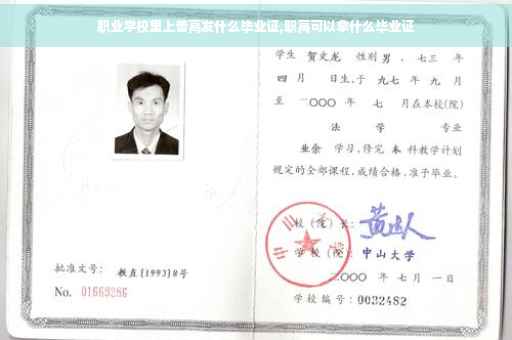 职业学校里上普高发什么毕业证,职高可以拿什么毕业证
学生 贺文龙 性别 男 、七三 年
四 月 日生,于 九七 年 九 月
至 二〇〇〇 年 七 月在本校(院)
法 学 专业
业余 学习,修完 本 科教学计划
规定的全部课程,成绩合格,准予毕业。
校(院)长:
学校(院): 中山大学
二〇〇〇 年 七 月 一 日
批准文号: 教直[1993]8号
No. 01669286
学校编号: 0032482